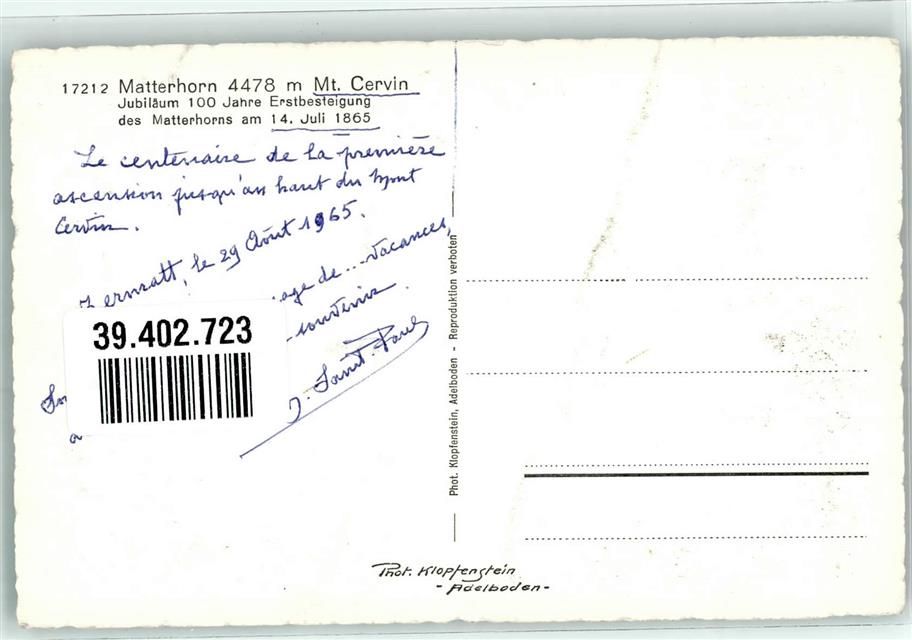 17212 Matterhorn 4478 m Mt. Cervin
Jubiläum 100 Jahre Erstbesteigung
des Matterhorns am 14. Juli 1865
Le centenaire de la première
ascension jusqu'au haut du Mont
Cervin.
Zermatt, le 29 Août 1965.
age de... vacances,
souvenir.
J. Saint-Paul
39.402.723
Phot. Klopfenstein, Adelboden - Reproduktion verboten
Phot. Klopfenstein
- Adelboden -